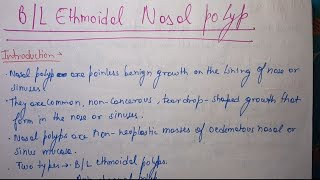 B/L Ethmoidal Nasal polyp.
Introduction:-
• Nasal polyp are painless benign growth on the lining of nose or
sinuses.
• They are common, non-cancerous, teardrop-shaped growth that
form in the nose or sinuses.
• Nasal polyps are Non-neoplastic masses of oedematous nasal or
sinus mucosa.
• Two types → B/L ethmoidal polyps.